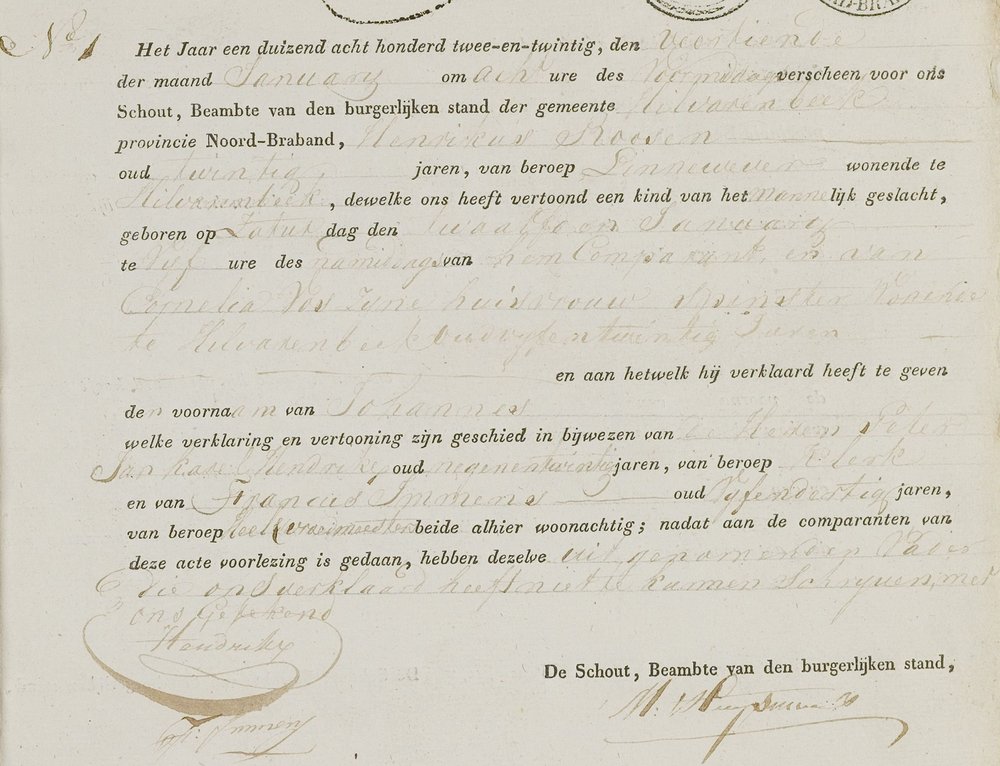 RD-BRA
N° 1
Het Jaar een duizend acht honderd twee-en-twintig, den Veertiende
der maand January om acht ure des Voormiddags verscheen voor ons
Schout, Beambte van den burgerlijken stand der gemeente Hilvarenbeek
provincie Noord-Braband, Henrikus Roosen
oud twintig, jaren, van beroep Linnewever wonende te
Hilvarenbeek, dewelke ons heeft vertoond een kind van het mannelijk geslacht,
geboren op Zatur dag den twaalfden January
te Vijf ure des namiddags van hem Comparant, en van
Cornelia Vos zyne huisvrouw Spinster Wonende
te Hilvarenbeek oud vyfentwintig Jaren
en aan hetwelk hij verklaard heeft te geven
den voornaam van Johannes
welke verklaring en vertooning zijn geschied in bijwezen van de Heeren Peter
Jan Karel Hendrikx, oud negenentwintig jaren, van beroep Klerk
en van Francus Immens oud Vyfendertig jaren,
van beroep beide alhier woonachtig; nadat aan de comparanten van
deze acte voorlezing is gedaan, hebben dezelve uitgenomen den Vader
die ons verklaard heeft niet te kunnen Schryven, met
ons Getekend
Hendrikx
F. Immens
De Schout, Beambte van den burgerlijken stand,